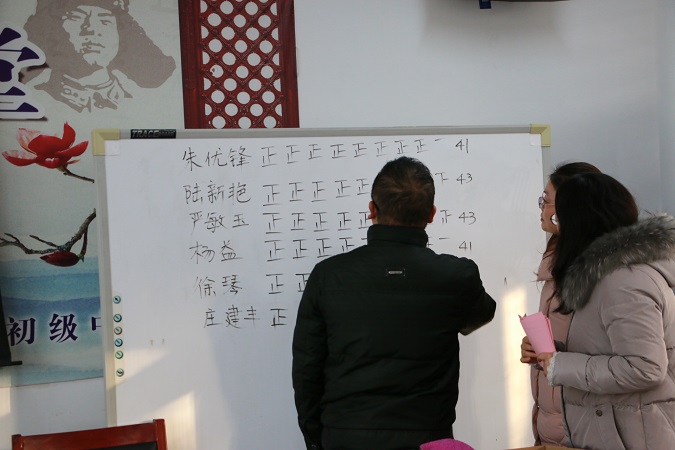 堂
初级中
朱优锋 正 正 正 正 正 正 正 正 一 41
陆新艳 正 正 正 正 43
严敏玉 正 正 正 正 43
杨益 正 正 正 正 一 41
徐琴 正 正
庄建丰 正